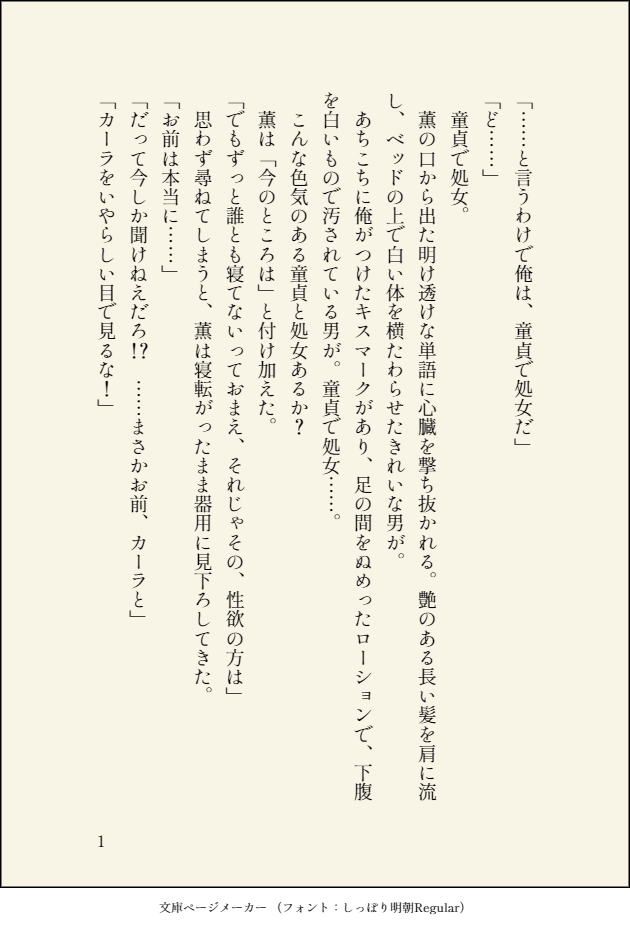 「……と言うわけで俺は、童貞で処女だ」
「ど……」
　童貞で処女。
　薫の口から出た明け透けな単語に心臓を撃ち抜かれる。艶のある長い髪を肩に流
し、ベッドの上で白い体を横たわらせたきれいな男が。
　あちこちに俺がつけたキスマークがあり、足の間をぬめったローションで、下腹
を白いもので汚されている男が。童貞で処女……。
　こんな色気のある童貞と処女あるか？
　薫は「今のところは」と付け加えた。
「でもずっと誰とも寝てないっておまえ、それじゃその、性欲の方は」
　思わず尋ねてしまうと、薫は寝転がったまま器用に見下ろしてきた。
「お前は本当に……」
「だって今しか聞けねえだろ!?　……まさかお前、カーラと」
「カーラをいやらしい目で見るな！」
1
文庫ページメーカー （フォント：しっぽり明朝Regular）